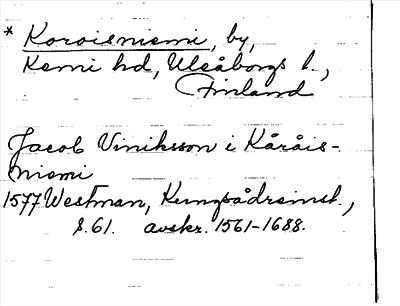 * Koroisniemi, by,
Kemi hd, Uleåborgs l.,
Finland
Jacob Viniksson i Kåråis-
niemi
1577 Westman, Kungsådreinst.,
s. 61. avskr. 1561-1688.